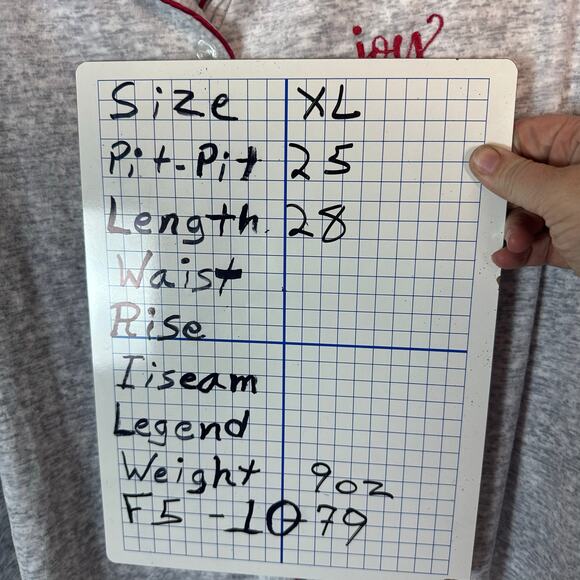 joy
Size XL
Pit-Pit 25
Length 28
Waist
Rise
Iiseam
Legend
Weight 9oz
F5-1079